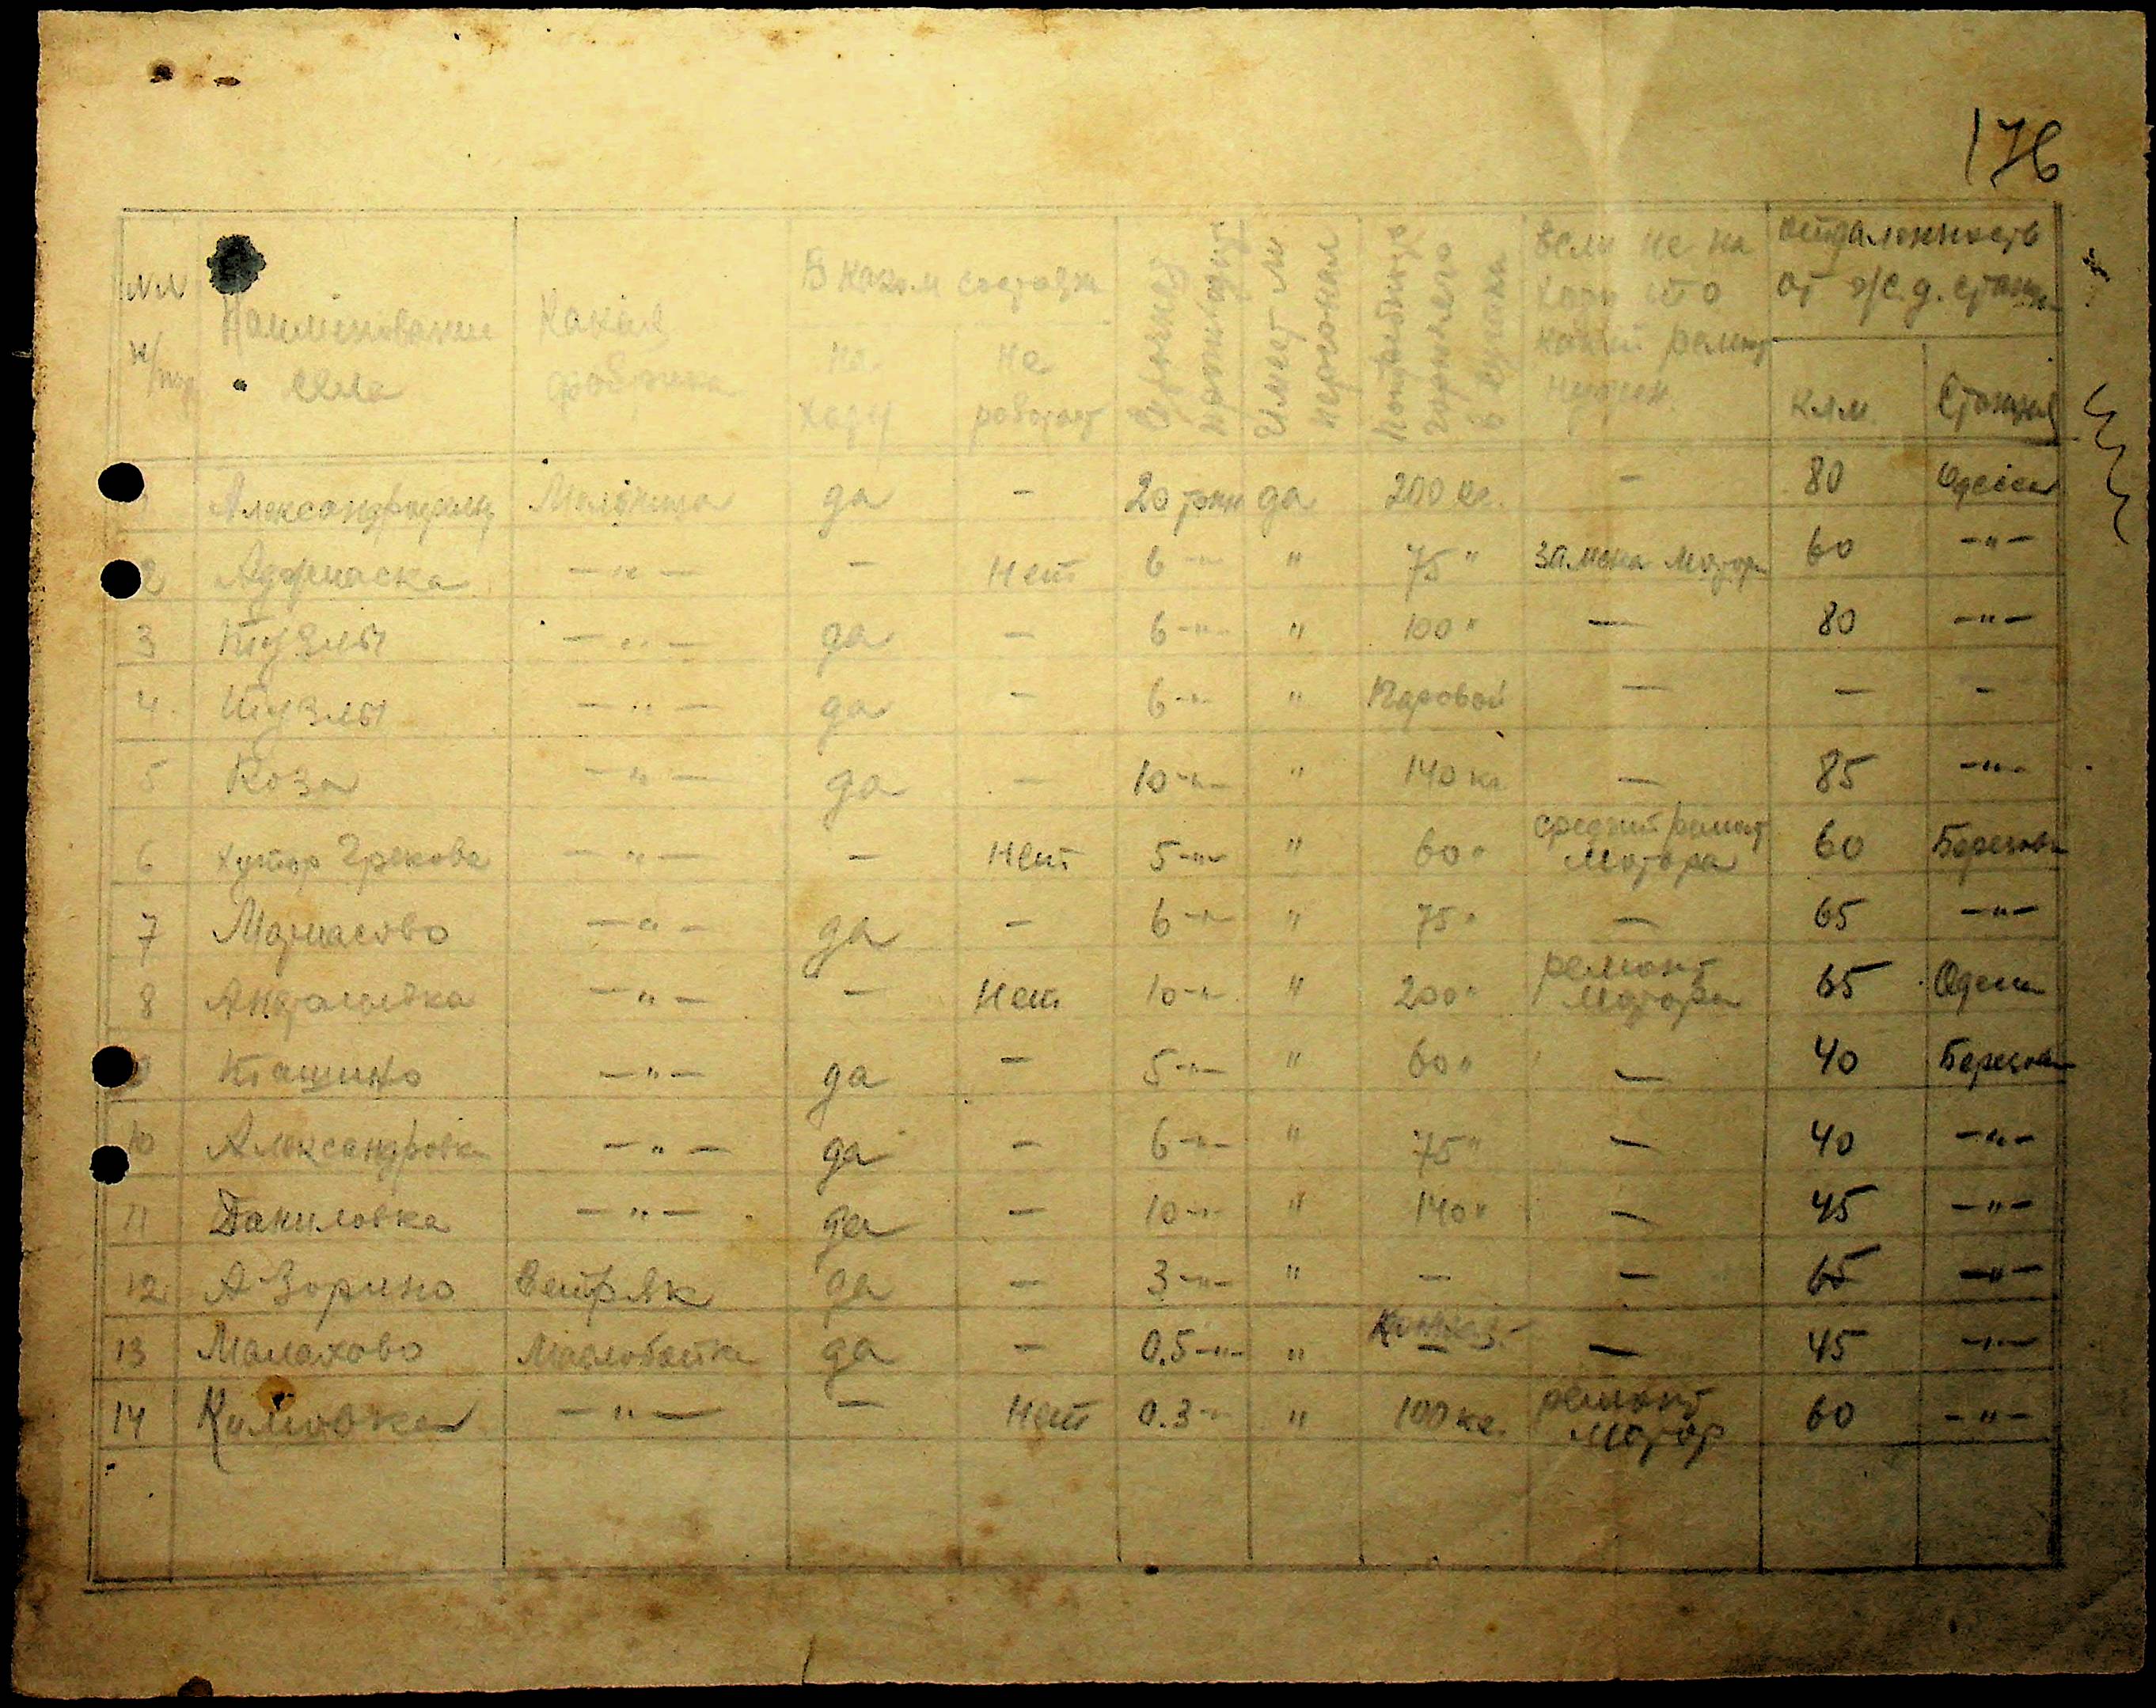 176
NN п/пор
Наименование села
Какая фабрика
В каком состоян
на ходу
не работает
Имеет ли персонал
Если не на ходу то какой ремонт нужен.
отдаленность от ж.д. станции
клм.
Станция
1 Мельница да - 20 тонн да 200 кг. - 80 Одесса
2 -"- - Нет 6 -"- " 75 " замена мотора 60 -"-
3 Тузлы -"- да - 6 -"- " 100 " - 80 -"-
4. Тузлы -"- да - 6 -"- " Паровой - - -
5 Коза -"- да - 10 -"- " 140 кг - 85 -"-
6 хутор Грекова -"- - Нет 5 -"- " 60 " средний ремонт мотора 60 Березовка
7 -"- да - 6 -"- " 75 " - 65 -"-
8 -"- - Нет 10 -"- " 200 " ремонт мотора 65 Одесса
9 Ташино -"- да - 5 -"- " 60 " - 40 Березовка
10 Александровка -"- да - 6 -"- " 75 " - 40 -"-
11 Даниловка -"- да - 10 -"- " 140 " - 45 -"-
12. Ветряк да - 3 -"- " - - 65 -"-
13 Малахово Маслобойка да - 0.5 -"- " - 45 -"-
14 -"- - Нет 0.3 -"- " 100 кг. ремонт мотор 60 -"-